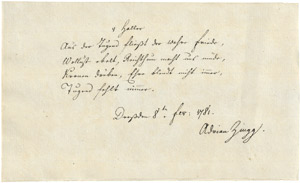 v Haller
Aus der Tugend fließt der wahre Friede,
Wollust ekelt, Reichthum macht uns müde,
Kronen drüken, Ehre blendt nicht imer,
Tugend fehlt nimer.
Dresden 8t. feb: 1781.
Adrian Zingg.